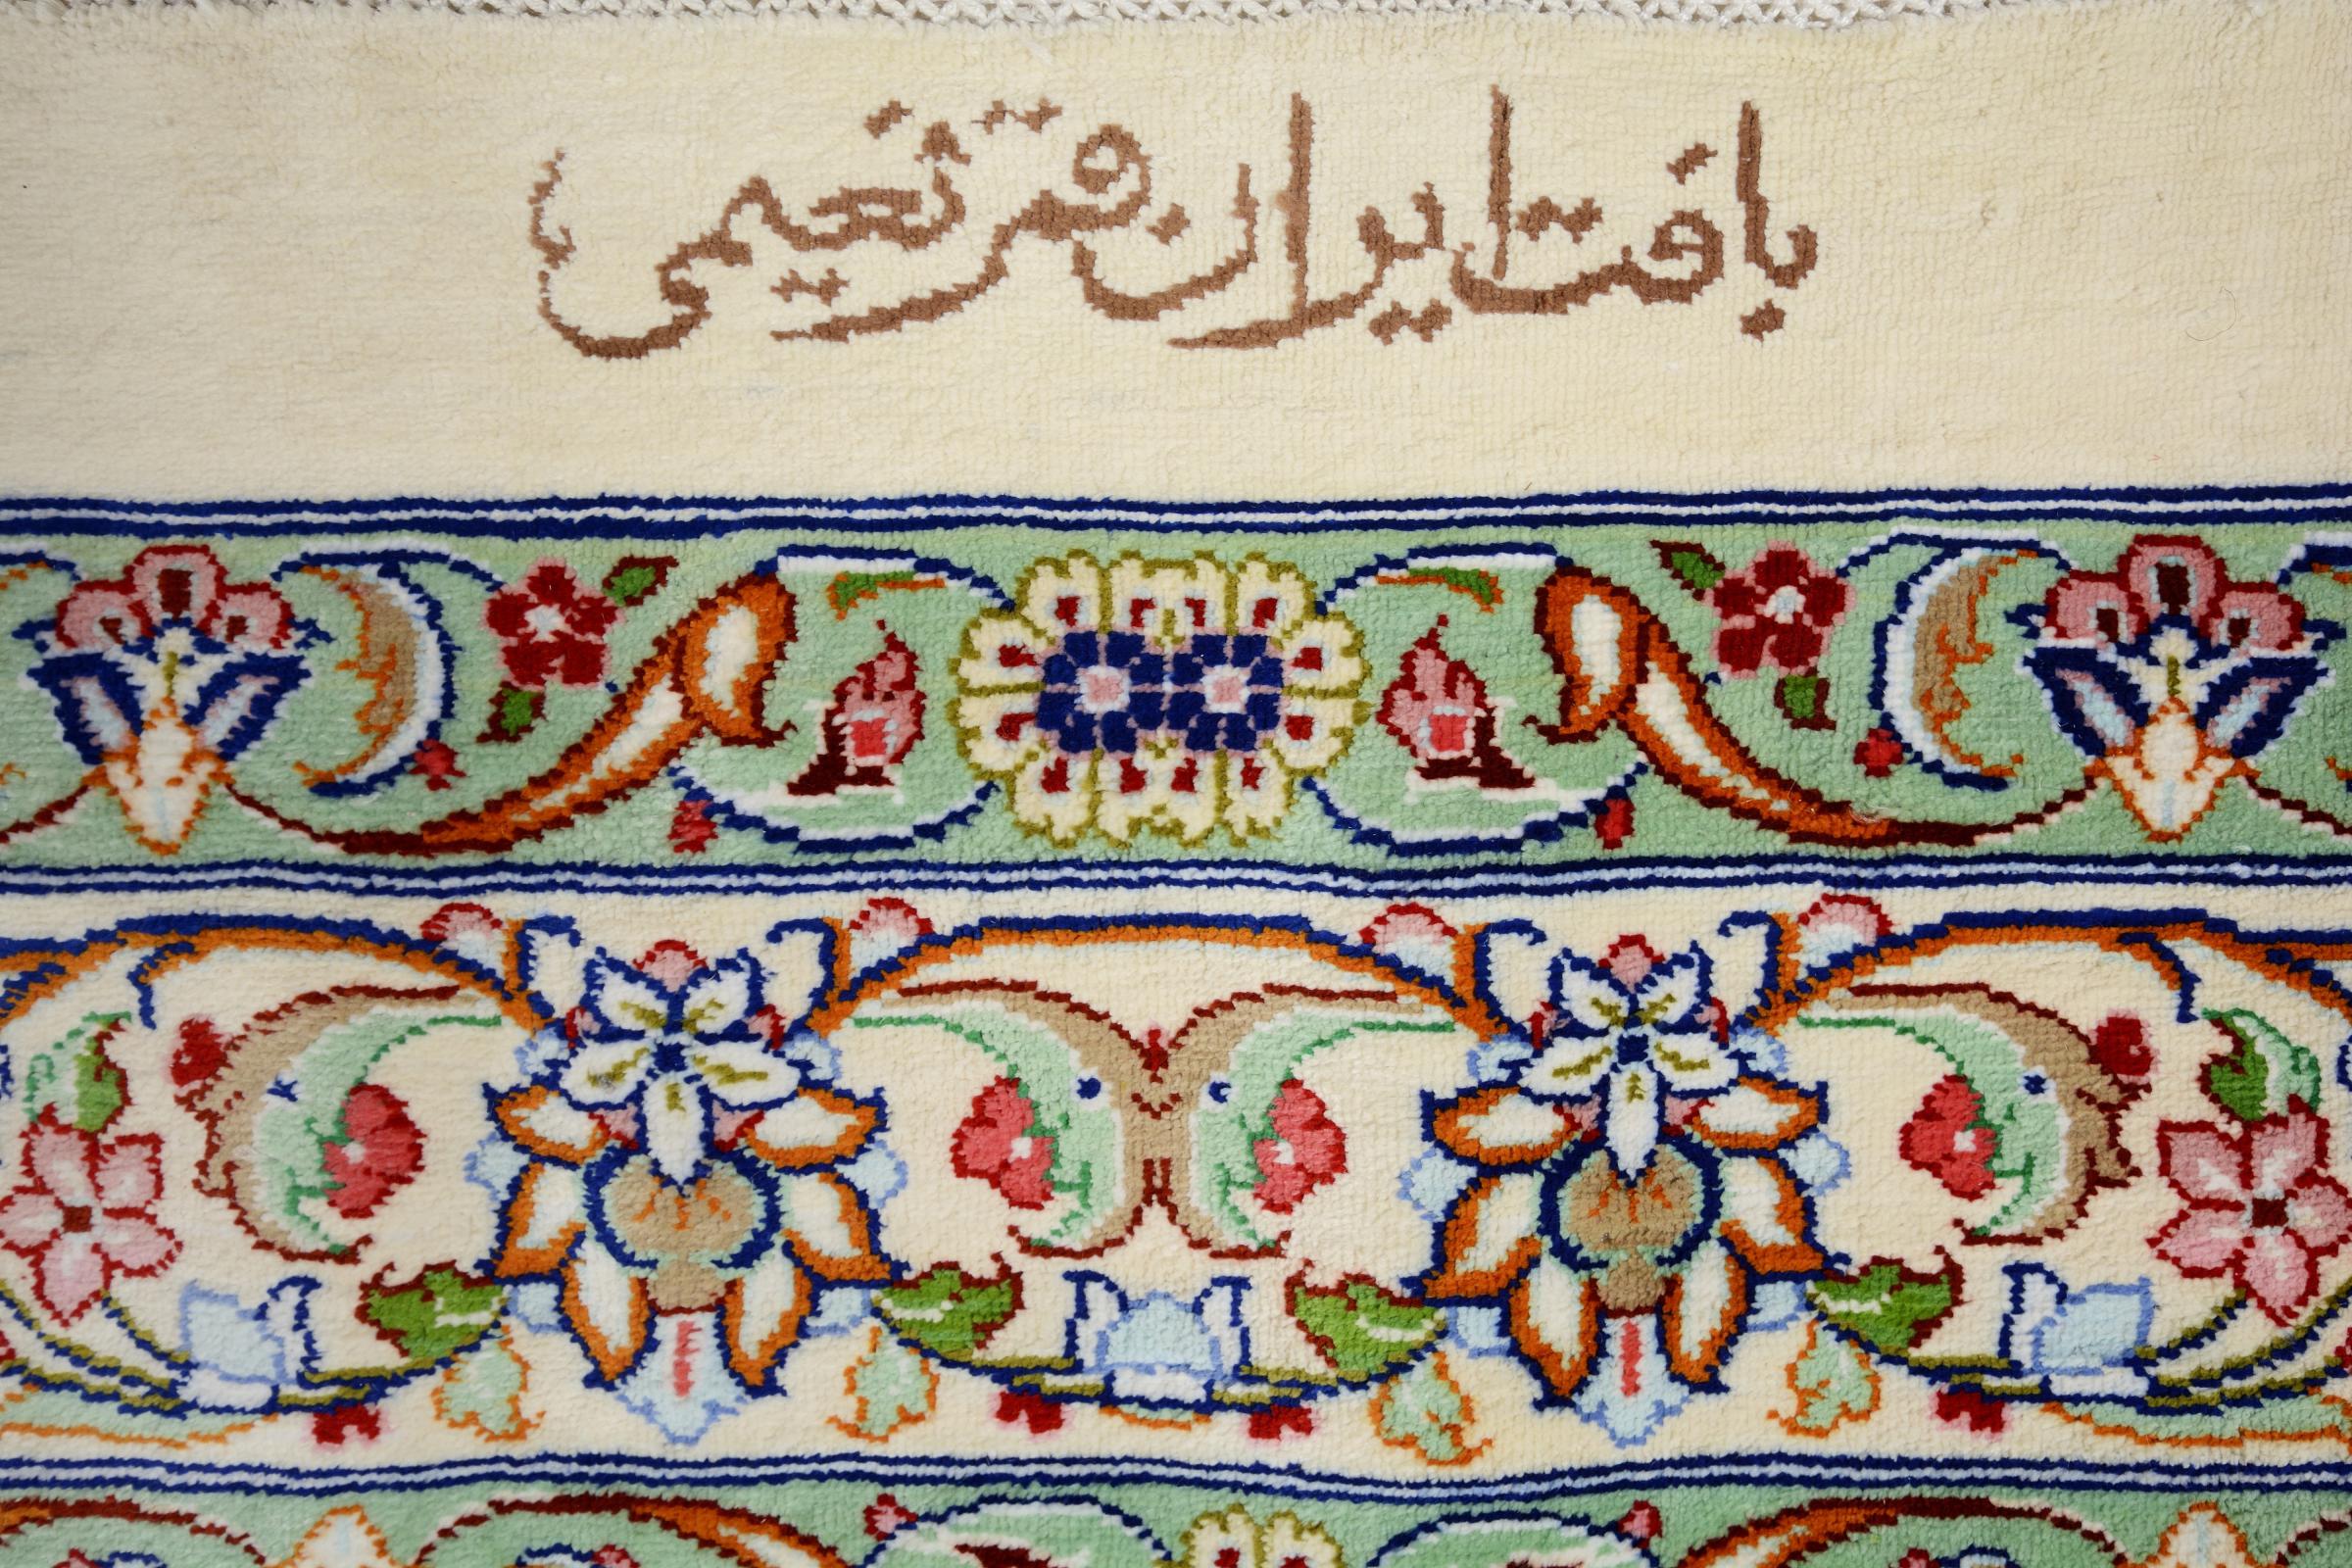 بافت ایران قم نعیمی